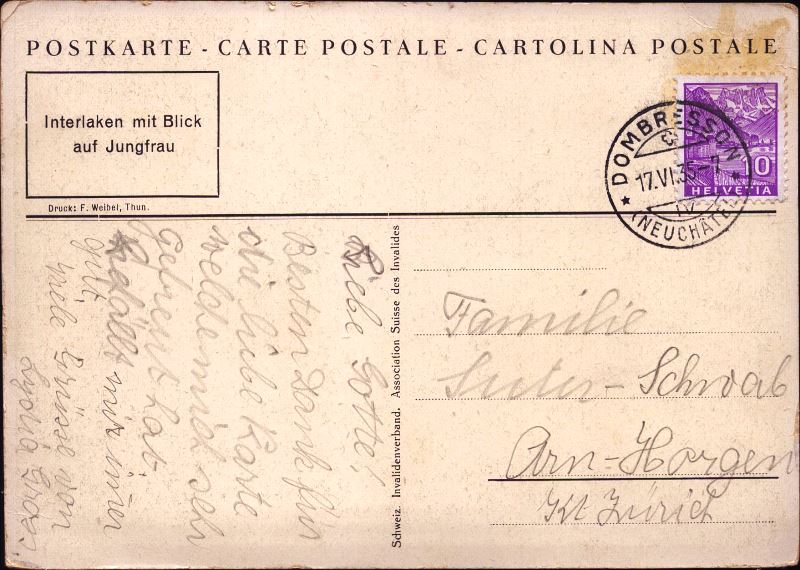 POSTKARTE - CARTE POSTALE - CARTOLINA POSTALE
Interlaken mit Blick
auf Jungfrau
Druck: F. Weibel, Thun.
DOMBRESSON
17.VI.35-7
(NEUCHÂTEL)
10
HELVETIA
Liebe Gotte!
Besten Dank für
die liebe Karte
welche mich sehr
gefreut hat.
mir immer
gut,
viele Grüsse von
Schweiz. Invalidenverband. Association Suisse des Invalides
Familie
Suter-Schwab
Arn-Horgen
Kt Zürich